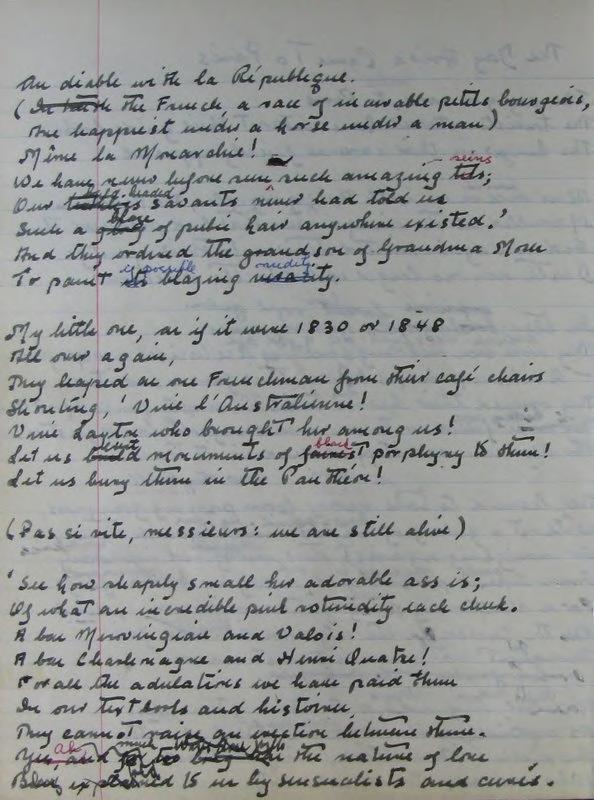 Au diable with la République.
(In truth the French a race of incurable petits bourgeois,
Are happiest under a horse under a man)
Même la Monarchie!
We have never before seen such amazing tits; seins
Our savants never had told us
bald-headed
Such a glory of pubic hair anywhere existed.'
blaze
And they ordered the grandson of Grandma Moses
To paint its blazing nudity.
if possible
My little one, as if it were 1830 or 1848
All over again,
They leaped as one Frenchman from their café chairs
Shouting, 'Vive l'Australienne!
Vive Layton who brought her among us!
Let us build monuments of black porphyry to them!
erect
Let us bury them in the Panthéon!
(Pas si vite, messieurs: we are still alive)
'See how shapely small her adorable ass is;
Of what an incredible pink rotundity each cheek.
A bas Merovingian and Valois!
A bas Charlemagne and Henri Quatre!
For all the adulations we have paid them
In our textbooks and histoires
They cannot raise an erection between them.
Yes, and for too long has the nature of love
ah much
Been explained to us by sensualists and curés.